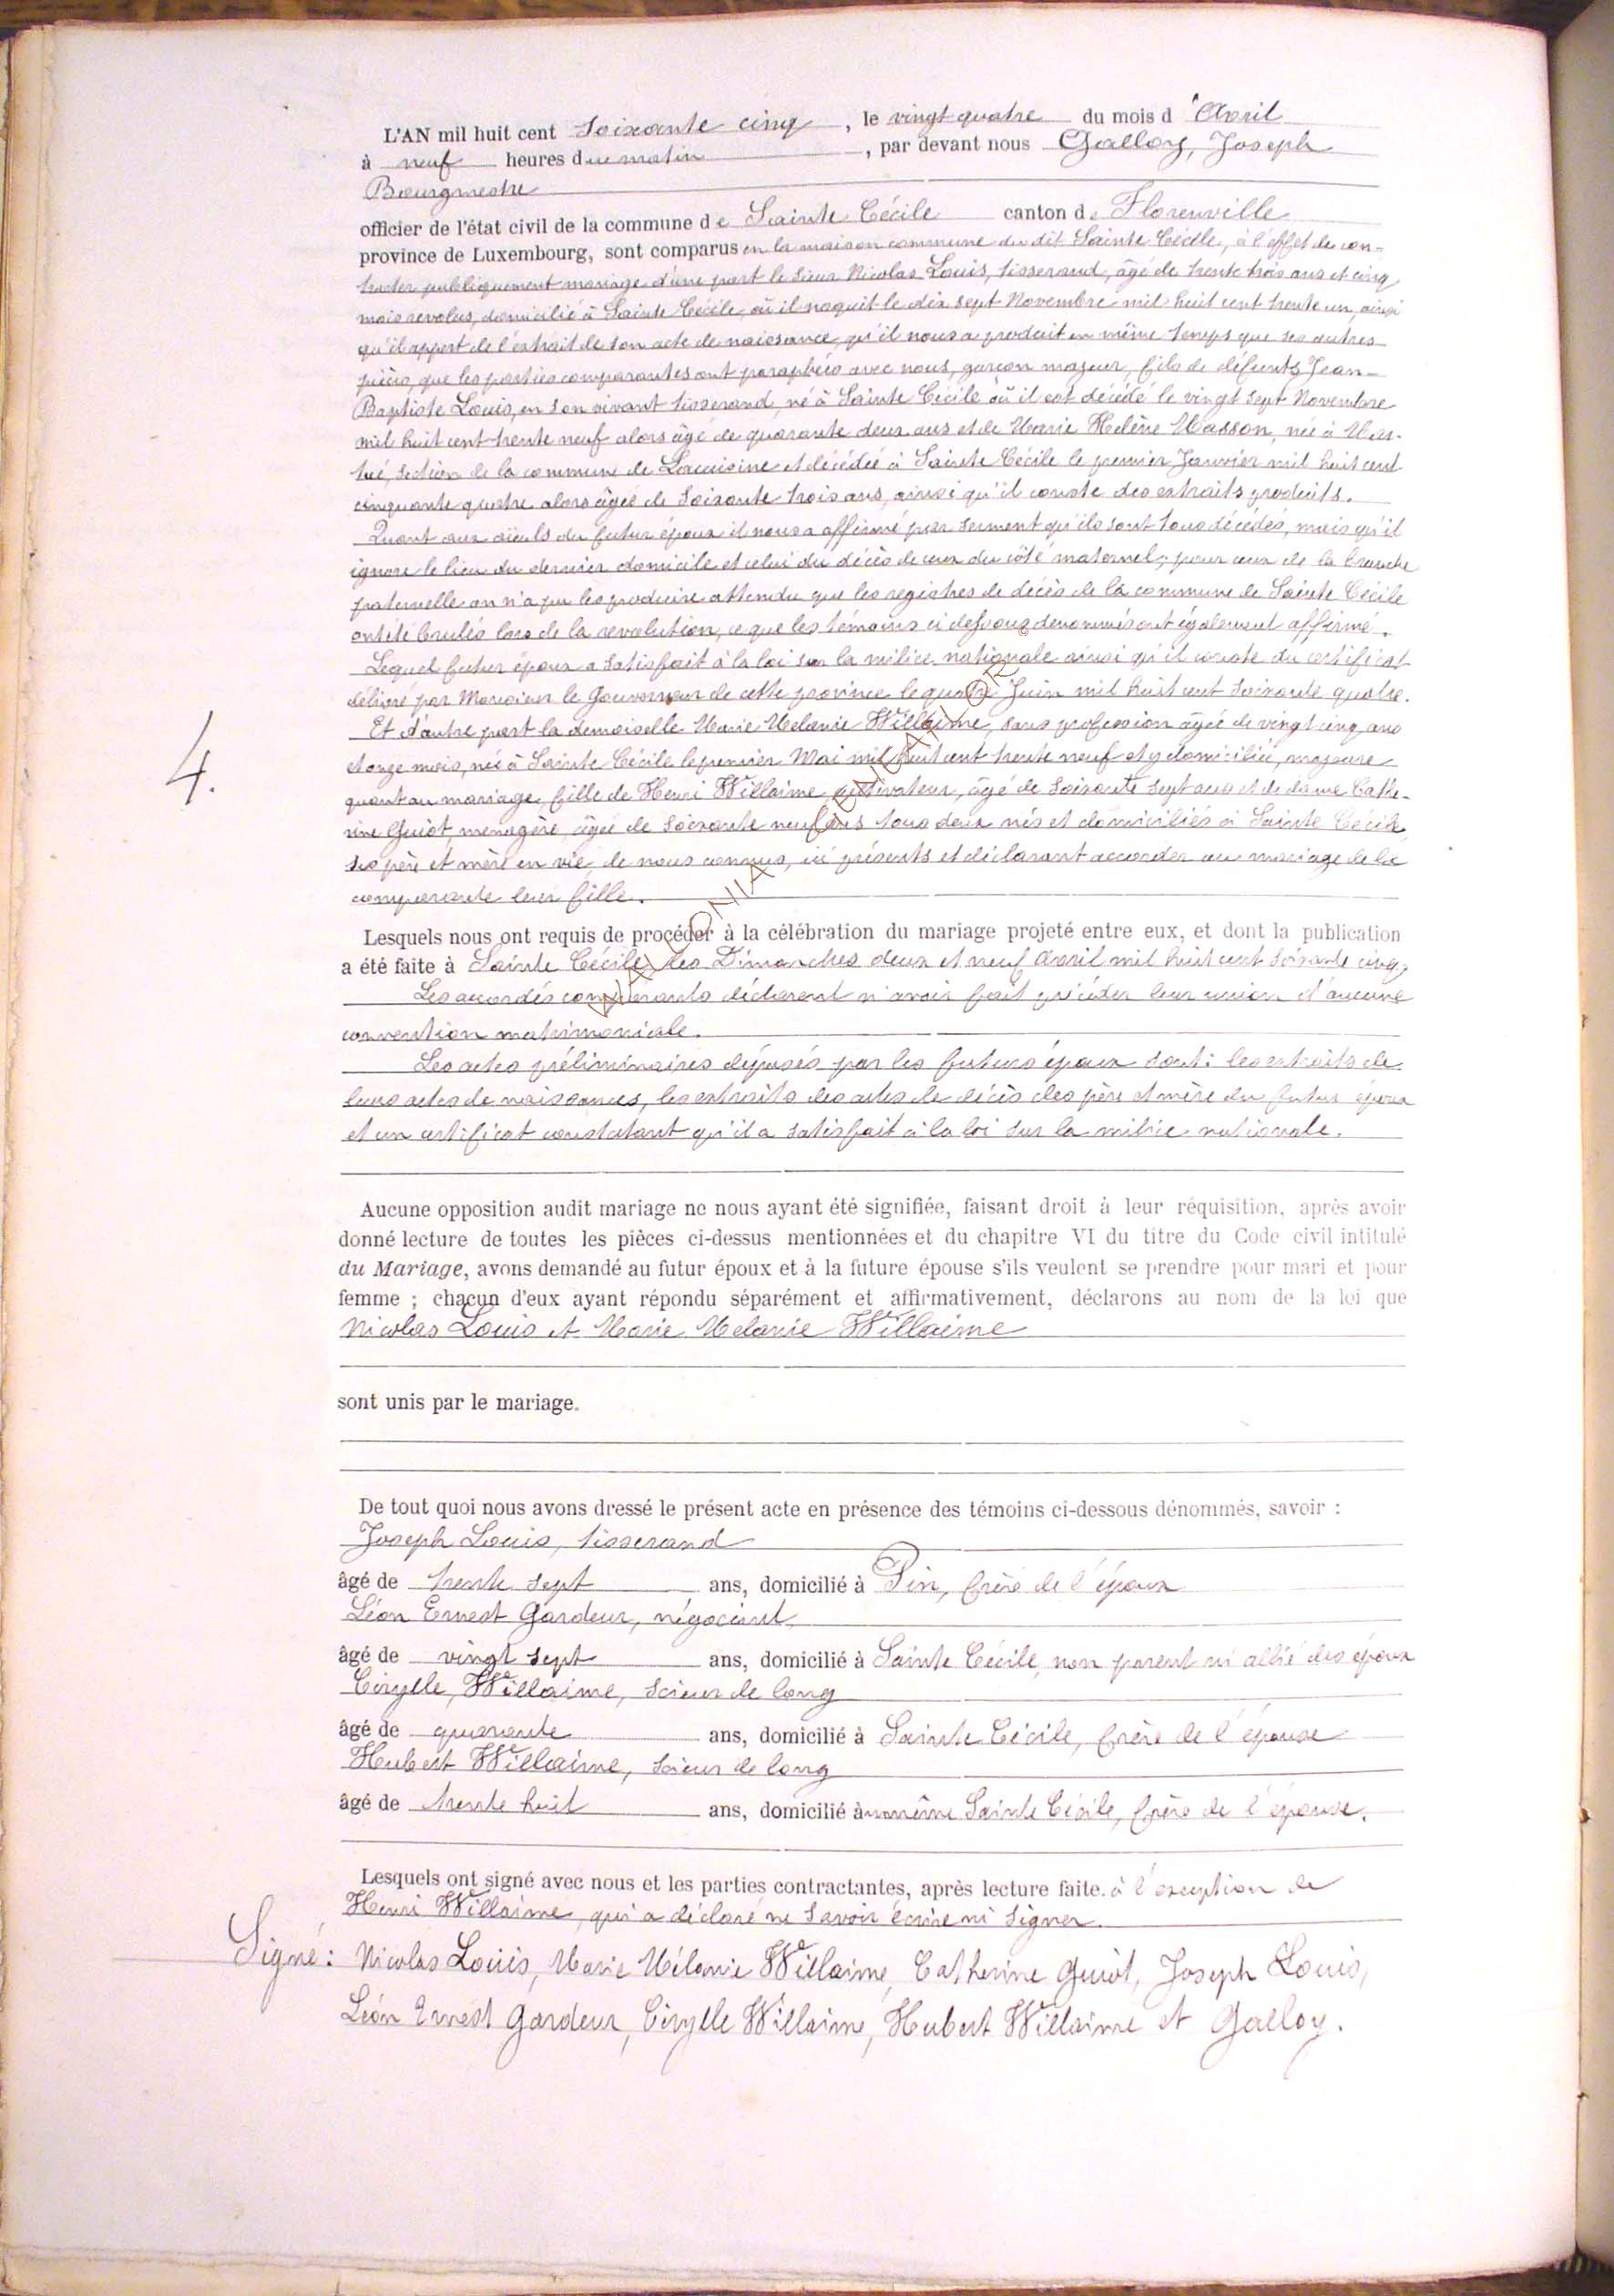 L'AN mil huit cent soixante cinq, le vingt quatre du mois d'Avril
à neuf heures du matin, par devant nous Galloy, Joseph
Bourgmestre
officier de l'état civil de la commune de Sainte Cécile canton de Florenville
province de Luxembourg, sont comparus en la maison commune du dit Sainte Cécile, à l'effet de con-
tracter publiquement mariage d'une part le sieur Nicolas Louis, tisserand, âgé de trente trois ans et cinq
mois revolus, domicilié à Sainte Cécile, où il naquit le dix sept Novembre mil huit cent trente un, ainsi
qu'il appert de l'extrait de son acte de naissance, qu'il nous a produit en même temps que ses autres
pièces, que les parties comparantes ont paraphées avec nous, garçon majeur, fils de défunts Jean-
Baptiste Louis, en son vivant tisserand, né à Sainte Cécile où il est décédé le vingt sept Novembre
mil huit cent trente neuf alors âgé de quarante deux ans et de Marie Helène Masson, née à Mar-
tué, section de la commune de Lacuisine et décédée à Sainte Cécile le premier Janvier mil huit cent
cinquante quatre alors âgée de soixante trois ans, ainsi qu'il conste des extraits produits.
Quant aux aïeuls du futur époux il nous a affirmé par serment qu'ils sont tous décédés, mais qu'il
ignore le lieu du dernier domicile et celui du décès de ceux du côté maternel; pour ceux de la branche
paternelle on n'a pu les produire attendu que les registres de décès de la commune de Sainte Cécile
ont été brulés lors de la revolution, ce que les témoins ci dessous denommés ont également affirmé.
Lequel futur époux a satisfait à la loi sur la milice nationale ainsi qu'il conste du certificat
délivré par Monsieur le Gouverneur de cette province le quatre Juin mil huit cent soixante quatre.
Et d'autre part la demoiselle Marie Melanie Willaime, sans profession âgée de vingt cinq ans
et onze mois, née à Sainte Cécile le premier Mai mil huit cent trente neuf et y domiciliée, majeure
4.
quant au mariage, fille de Henri Willaime cultivateur, âgé de soixante sept ans et de dame Cathe-
rine Guiot, menagère, âgée de soixante neuf ans tous deux nés et domiciliés à Sainte Cécile
ses père et mère en vie, de nous connus, ici présents et déclarant accorder au mariage de la
comparante leur fille.
Lesquels nous ont requis de procéder à la célébration du mariage projeté entre eux, et dont la publication
a été faite à Sainte Cécile, les Dimanches deux et neuf Avril mil huit cent soixante cinq.
Les accordés comparants déclarent n'avoir fait précéder leur union d'aucune
convention matrimoniale.
Les actes préliminaires déposés par les futurs époux sont: les extraits de
leurs actes de naissances, les extraits des actes de décès des père et mère du futur époux
et un certificat constatant qu'il a satisfait à la loi sur la milice nationale.
Aucune opposition audit mariage ne nous ayant été signifiée, faisant droit à leur réquisition, après avoir
donné lecture de toutes les pièces ci-dessus mentionnées et du chapitre VI du titre du Code civil intitulé
du Mariage, avons demandé au futur époux et à la future épouse s'ils veulent se prendre pour mari et pour
femme ; chacun d'eux ayant répondu séparément et affirmativement, déclarons au nom de la loi que
Nicolas Louis et Marie Melanie Willaime
sont unis par le mariage.
De tout quoi nous avons dressé le présent acte en présence des témoins ci-dessous dénommés, savoir :
Joseph Louis, tisserand
âgé de trente sept ans, domicilié à Pin, frère de l'époux
Léon Ernest Gardeur, négociant
âgé de vingt sept ans, domicilié à Sainte Cécile, non parent ni allié des époux
Cirylle, Willaime, scieur de long
âgé de quarante ans, domicilié à Sainte Cécile, frère de l'épouse
Hubert Willaime, scieur de long
âgé de trente huit ans, domicilié à même Sainte Cécile, frère de l'épouse.
Lesquels ont signé avec nous et les parties contractantes, après lecture faite. à l'exception de
Henri Willaime, qui a déclaré ne savoir écrire ni signer.
Signé: Nicolas Louis, Marie Mélanie Willaime, Catherine Guiot, Joseph Louis,
Léon Ernest Gardeur, Cirylle Willaime, Hubert Willaime et Galloy.